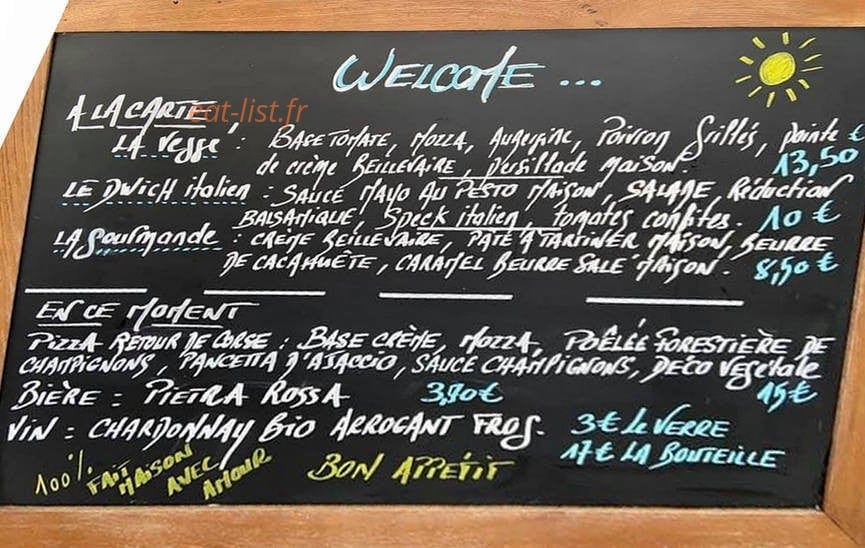 WELCOME ...
A LA CARTE,
eat-list.fr
LA Vegge : BASE TOMATE, MOZZA, AUBERGINE, Poivron Grillés, pointe
de crème BEILLEVAIRE, persillade MAISON. 13,50 €
LE DWICH italien : SAUCE MAYO AU PESTO MAISON, SALADE, Réduction
BALSAMIQUE, Speck italien, tomates confites. 10 €
LA Gourmande : CRÈME BEILLEVAIRE, PÂTE À TARTINER MAISON, BEURRE
DE CACAHUÈTE, CARAMEL BEURRE SALÉ MAISON. 8,50 €
EN CE MOMENT
PIZZA RETOUR DE CORSE : BASE CRÈME, MOZZA, POÊLÉE FORESTIÈRE DE
CHAMPIGNONS, PANCETTA D'AJACCIO, SAUCE CHAMPIGNONS, DÉCO VÉGÉTALE
BIÈRE : PIETRA ROSSA 3,90€ 15€
VIN : CHARDONNAY BiO ARROGANT FROG. 3€ Le VERRE
17€ LA BOUTEILLE
100% FAIT
MAISON
AVEC
AMOUR
BON APPÉTIT